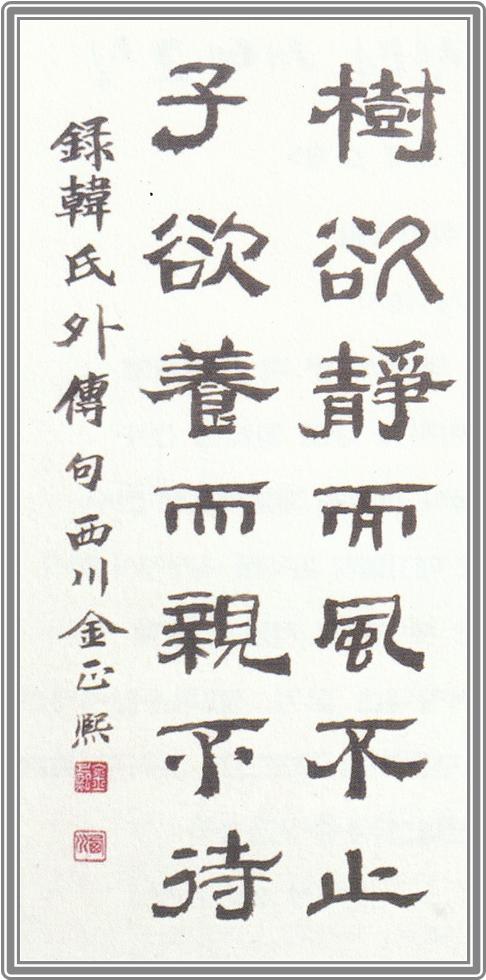 樹欲靜而風不止
子欲養而親不待
錄韓氏外傳句西川金正熙